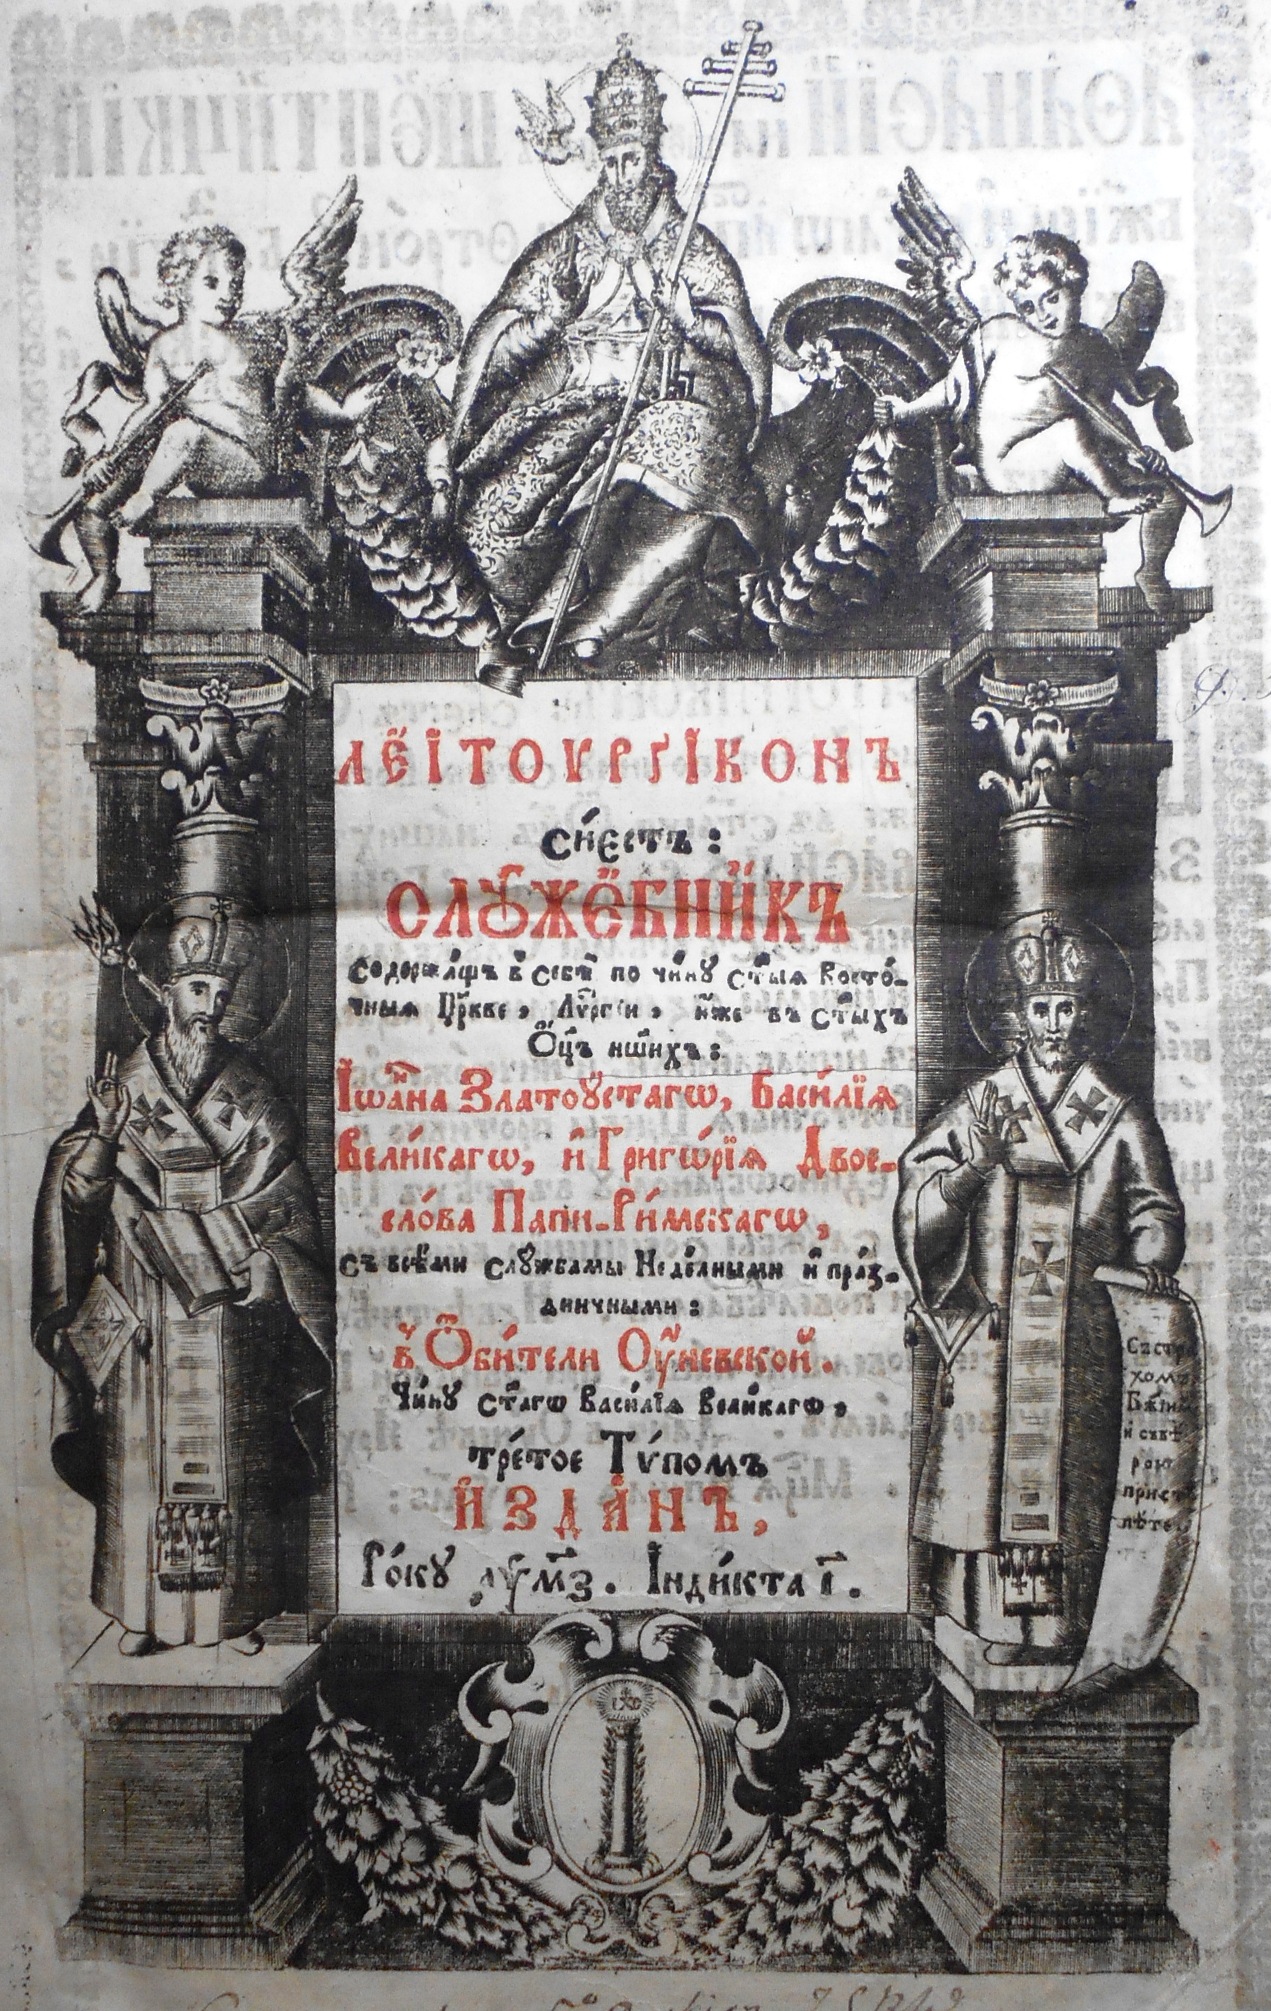 ЛЕІТОУРГІКОНЪ
сїесть:
СЛУЖЕБНИКЪ
содержащъ в̾ себѣ по чину ст҃ыя Восто-
чныя Цр҃кве, Лѵ҃ргіи, иже въ ст҃ыхъ
Ѻц҃ъ нш҃ихъ:
Іѡанна Златоустагѡ, Василїя
Великагѡ, и Григѡрїя Двое-
слова Папи-Римскагѡ,
съ всѣми службамы Недѣлными и праз-
дничными:
в̾ Ѻбители Оуневской.
Чину ст҃агѡ Василїя великагѡ,
третое Тѵпомъ
ИЗДАНЪ,
Року ҂аѱм҃з. Індикта і҃.
Съ стра
хомъ
Бж҃їим
и съ вѣ
рою
пристꙋ
пѣте
ІХС